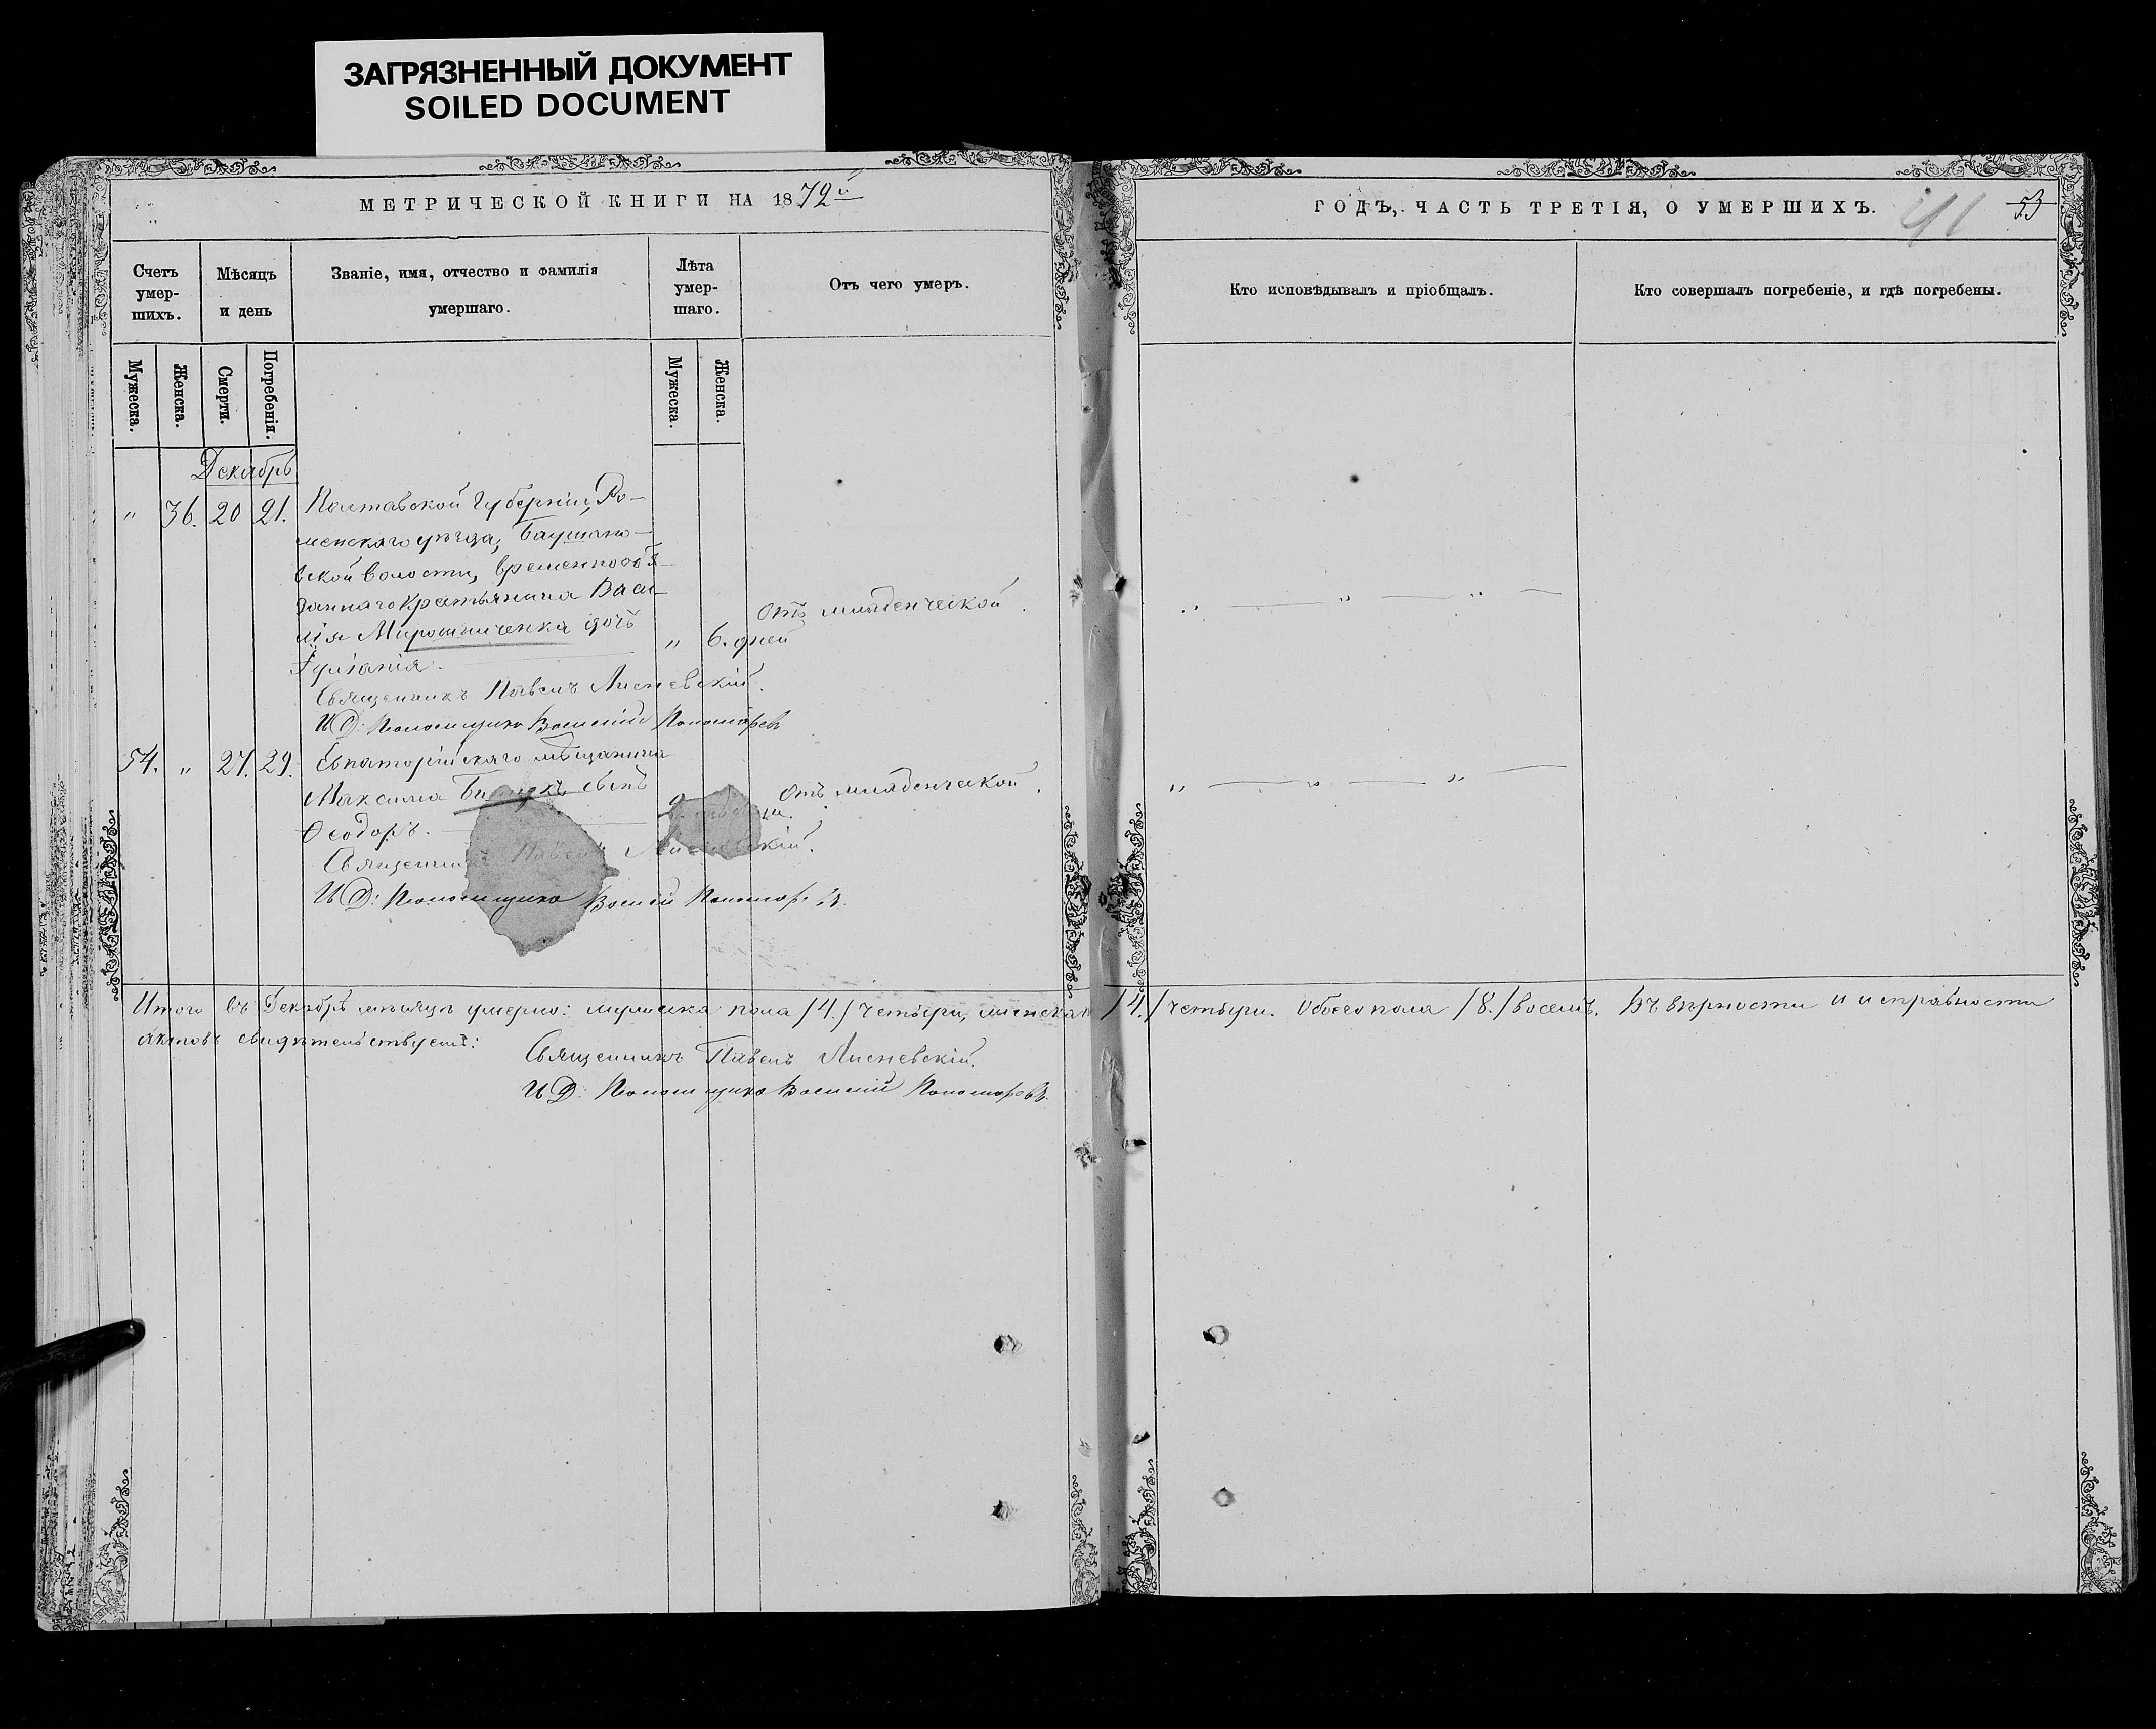 ЗАГРЯЗНЕННЫЙ ДОКУМЕНТ
SOILED DOCUMENT
МЕТРИЧЕСКОЙ КНИГИ НА 1872й
Счетъ умер-шихъ.
Мѣсяцъ и день
Званіе, имя, отчество и фамилія умершаго.
Лѣта умер-шаго.
Отъ чего умеръ.
Мужеска.
Женска.
Смерти.
Погребенія.
Мужеска.
Женска.
Декабрь
" 36. 20 21. Полтавской Губерніи, Ро-
менскаго уѣзда,
вской волости, временнообя-
заннаго крестьянина Васи-
лія Мирошниченка дочь
Іуліанія.
" 6. дней
Отъ младенческой.
Священникъ Павелъ Лисневскій.
И.Д: Псаломщика Василій Пономаревъ
54. " 27. 29. Евпаторійскаго мѣщанина
Максима сынъ
Ѳеодоръ.
Отъ младенческой.
Священникъ Павелъ Лисневскій.
И.Д: Псаломщика Василій Пономаревъ.
Итого въ Декабрѣ мѣсяцѣ умерло: мужеска пола /4./ четыри, женска
актовъ свидѣтельствуемъ:
Священникъ Павелъ Лисневскій.
И.Д: Псаломщика Василій Пономаревъ.
ГОДЪ, ЧАСТЬ ТРЕТІЯ, О УМЕРШИХЪ.
41
53
Кто исповѣдывалъ и пріобщалъ.
Кто совершалъ погребеніе, и гдѣ погребены.
" — " — " —
" — " — " —
/4./ четыри. Обоего пола /8./ восемь. Въ вѣрности и исправности